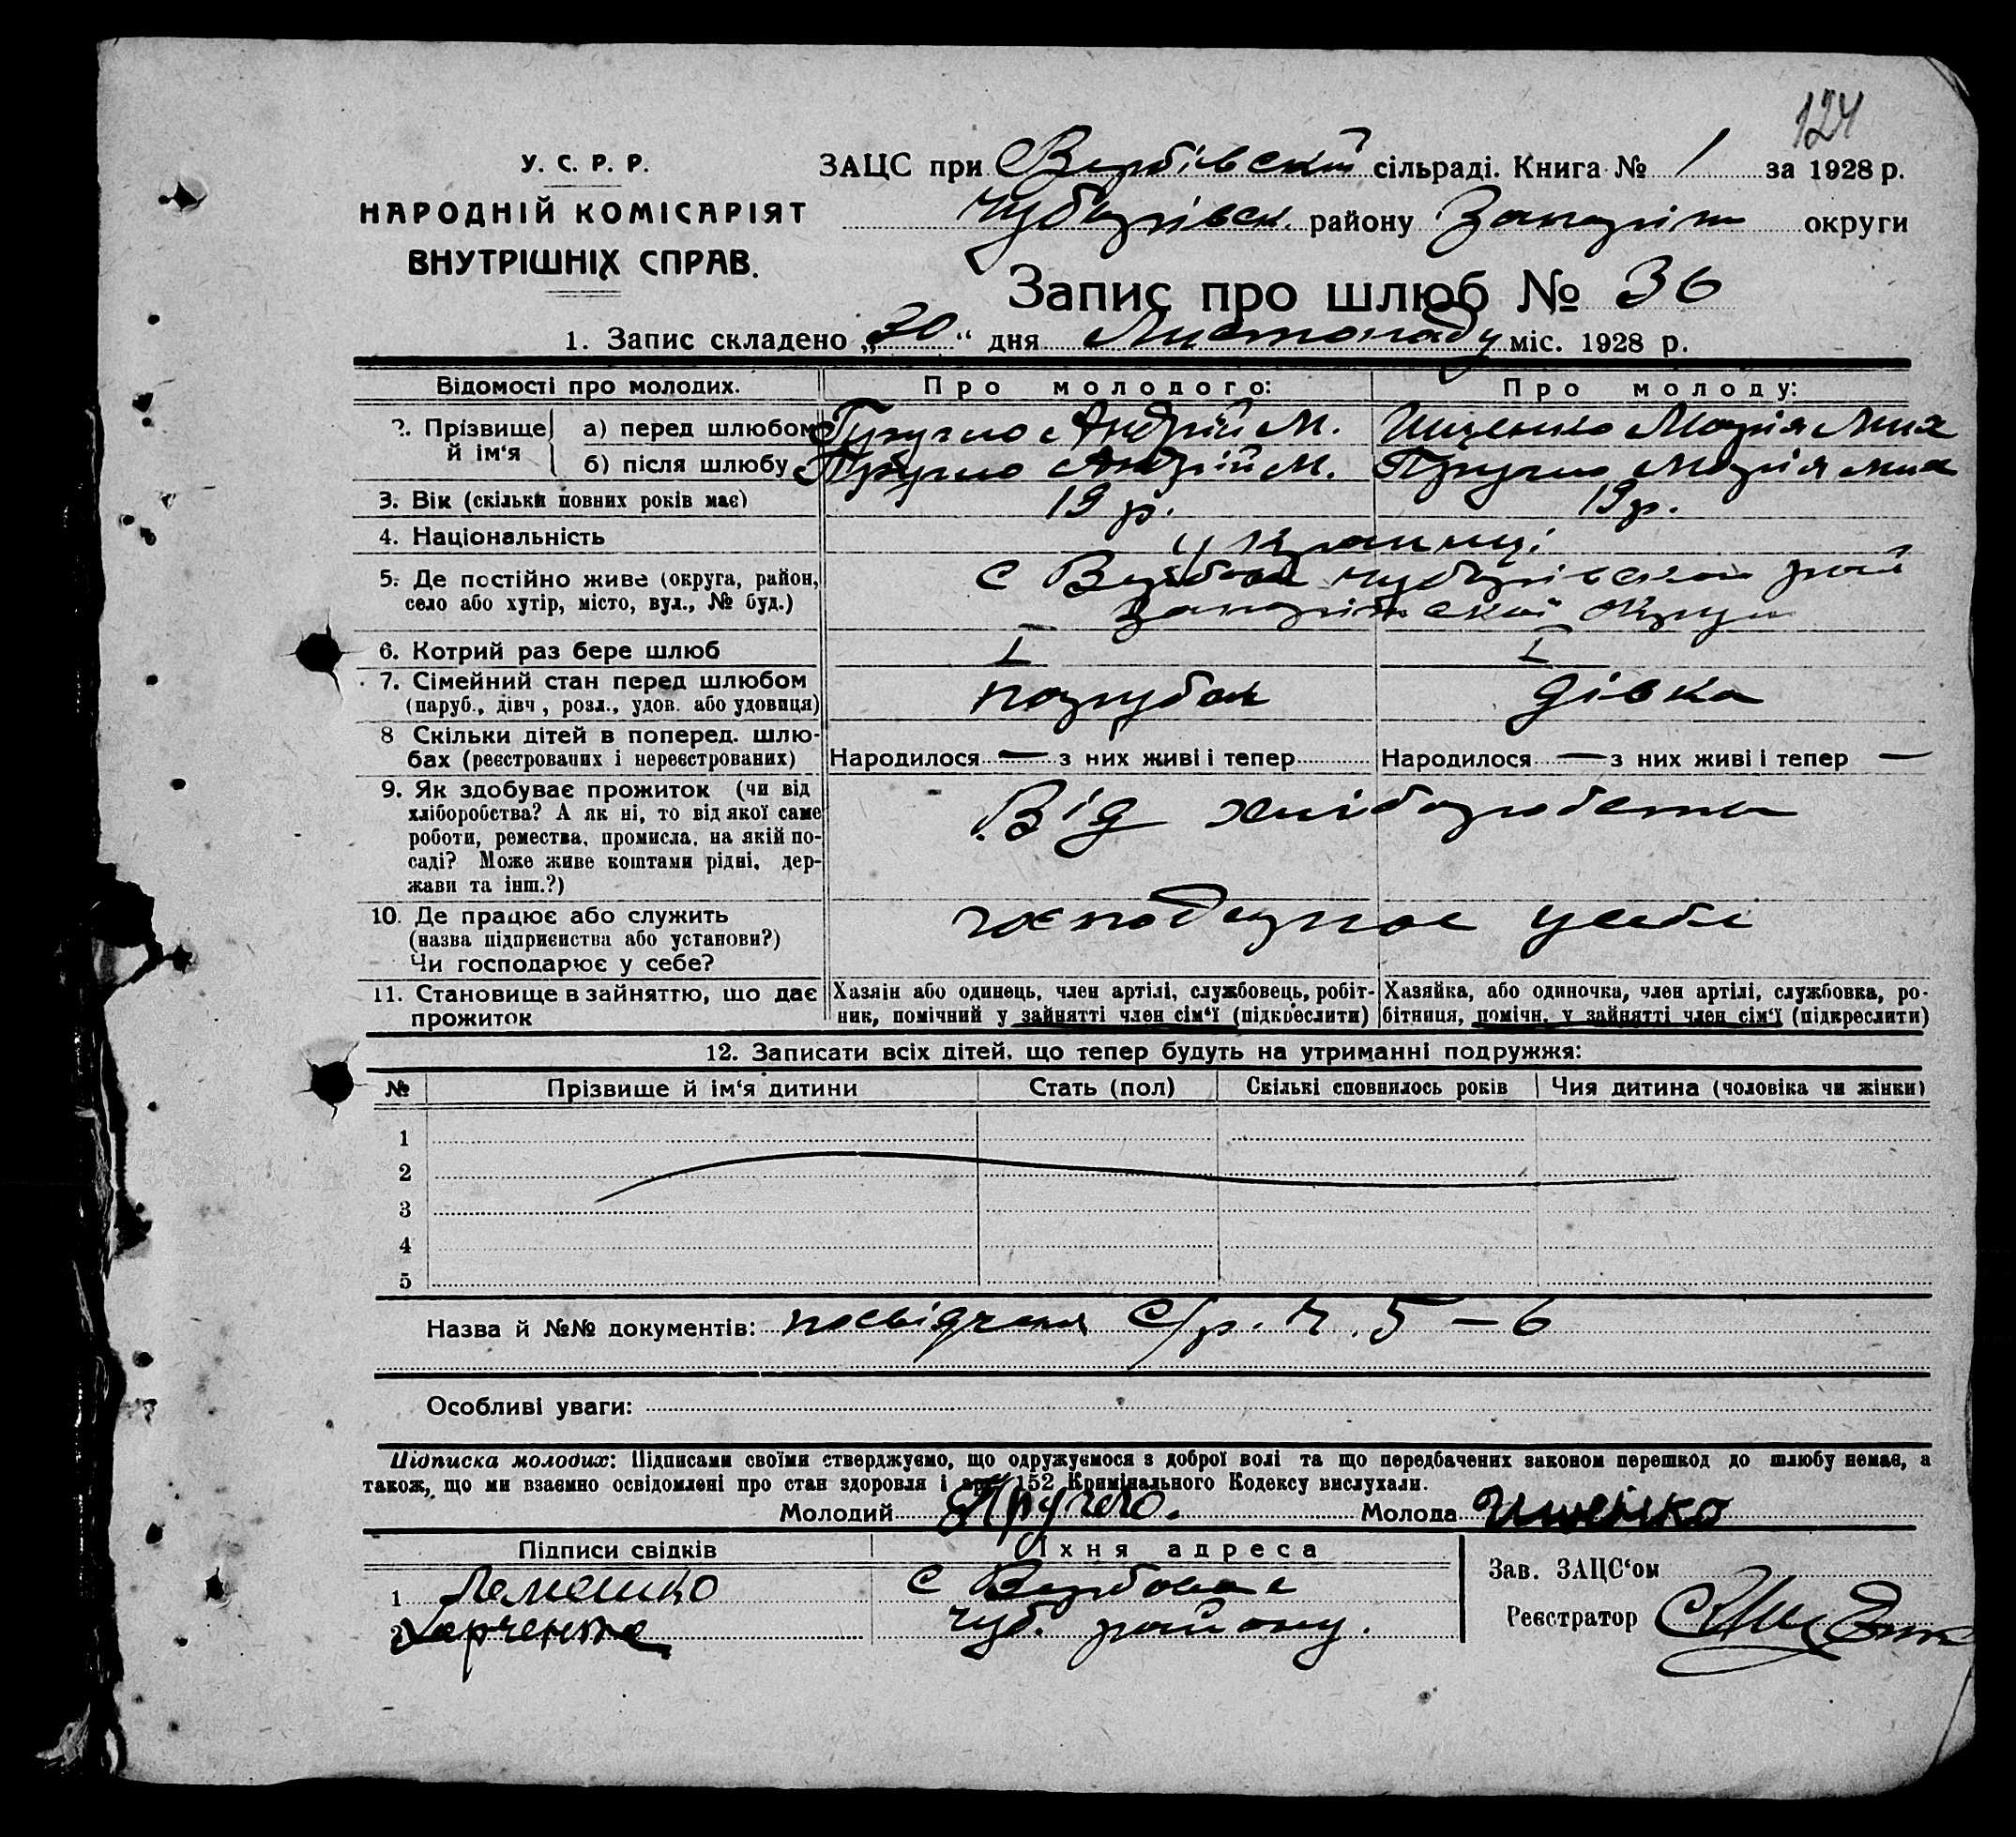 124
У. С. Р. Р.
НАРОДНІЙ КОМІСАРІЯТ
ВНУТРІШНІХ СПРАВ.
ЗАЦС при Вербівській сільраді. Книга № 1 за 1928 р.
Чубарівськ. району Запоріж округи
Запис про шлюб № 36
1. Запис складено „30“ дня Листопаду міс. 1928 р.
Відомості про молодих. Про молодого: Про молоду:
2. Прізвище й ім‘я а) перед шлюбом Андрій М. Ищенко Марія Мих
б) після шлюбу Андрій М. Марія Мих
3. Вік (скільки повних років має) 19 р. 19 р.
4. Національність українці
5. Де постійно живе (округа, район, с Вербове Чубарівського рай
село або хутір, місто, вул., № буд.) Запоріжської Округи
6. Котрий раз бере шлюб I I
7. Сімейний стан перед шлюбом парубок дівка
(паруб., дівч., розл., удов. або удовиця)
8 Скільки дітей в поперед. шлю-
бах (реєстрованих і нереєстрованих) Народилося — з них живі і тепер Народилося — з них живі і тепер —
9. Як здобуває прожиток (чи від
хліборобства? А як ні, то від якої саме Від хліборобства
роботи, ремества, промисла, на якій по-
саді? Може живе коштами рідні, дер-
жави та інш.?)
10. Де працює або служить господарює у себе
(назва підприємства або установи?)
Чи господарює у себе?
11. Становище в зайняттю, що дає Хазяін або одинець, член артілі, службовець, робіт- Хазяйка, або одиночка, член артілі, службовка, ро-
прожиток ник, помічний у зайнятті член сім‘ї (підкреслити) бітниця, помічн. у зайнятті член сім‘ї (підкреслити)
12. Записати всіх дітей, що тепер будуть на утриманні подружжя:
№ Прізвище й ім‘я дитини Стать (пол) Скількі сповнилось років Чия дитина (чоловіка чи жінки)
1
2
3
4
5
Назва й №№ документів: посвідчення С/р. ч. 5 – 6
Особливі уваги:
Підписка молодих: Підписами своїми стверджуємо, що одружуємося з доброї волі та що передбачених законом перешкод до шлюбу немає, а
також, що ми взаємно освідомлені про стан здоровля і арт. 152 Кримінального Кодексу вислухали.
Молодий Молода Ищенко
Підписи свідків Їхня адреса
Зав. ЗАЦС‘ом
1 Лемешко с Вербове
2 Харченко Чуб. району.
Реєстратор